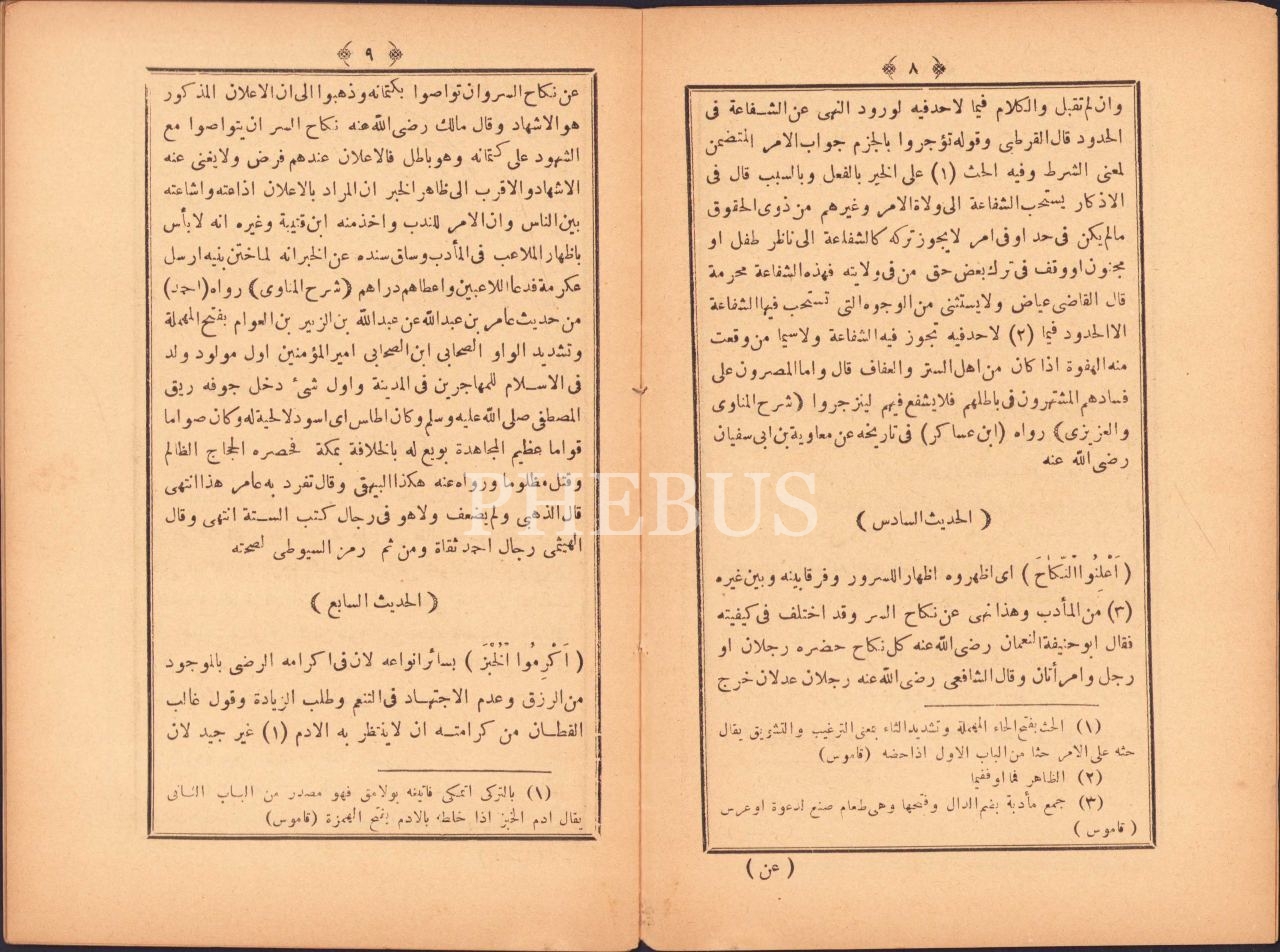 ﴿ ٨ ﴾
وان لم تقبل والكلام فيما لاحد فيه لورود النهى عن الشفاعة فى
الحدود قال القرطبى وقوله تؤجروا بالجزم جواب الامر المتضمن
لمعنى الشرط وفيه الحث (١) على الخير بالفعل وبالسبب قال فى
الاذكار يستحب الشفاعة الى ولاة الامر وغيرهم من ذوى الحقوق
مالم يكن فى حد او فى امر لا يجوز تركه كالشفاعة الى ناظر طفل او
مجنون او وقف فى ترك بعض حق من فى ولايته فهذه الشفاعة محرمة
قال القاضى عياض ولا يستثنى من الوجوه التى تستحب فيها الشفاعة
الا الحدود فيما (٢) لاحد فيه تجوز فيه الشفاعة ولاسيما من وقعت
منه الهفوة اذا كان من اهل الستر والعفاف قال واما المصرون على
فسادهم المشتهرون فى باطلهم فلا يشفع فيهم لينزجروا ﴿شرح المناوى
والعزيزى﴾ رواه (ابن عساكر) فى تاريخه عن معاوية بن ابى سفيان
رضى الله عنه
﴿ الحديث السادس ﴾
( اَعْلِنُوا النِّكَاحَ ) اى اظهروه اظهارا للسرور وفرقا بينه وبين غيره
(٣) من المأدب وهذا نهى عن نكاح السر وقد اختلف فى كيفيته
فقال ابو حنيفة النعمان رضى الله عنه كل نكاح حضره رجلان او
رجل وامرأتان وقال الشافعى رضى الله عنه رجلان عدلان خرج
(١) الحث بفتح الحاء المهملة وتشديد الثاء بمعنى الترغيب والتشريق يقال
حثه على الامر حثا من الباب الاول اذا حضه (قاموس)
(٢) الظاهر فما او ففيما
(٣) جمع مأدبة بضم الدال وفتحها وهى طعام صنع لدعوة او عرس
(قاموس)
( عن )
﴿ ٩ ﴾
عن نكاح السر وان تواصوا بكتمانه وذهبوا الى ان الاعلان المذكور
هو الاشهاد وقال مالك رضى الله عنه نكاح السر ان يتواصوا مع
الشهود على كتمانه وهو باطل فالاعلان عندهم فرض ولا يغنى عنه
الاشهاد والاقرب الى ظاهر الخبر ان المراد بالاعلان اذاعته واشاعته
بين الناس وان الامر للندب واخذ منه ابن قتيبة وغيره انه لا بأس
باظهار الملاعب فى المأدب وساق سنده عن الخبر انه لما ختن بنيه ارسل
عكرمة فدعا اللاعبين واعطاهم دراهم ﴿شرح المناوى﴾ رواه (احمد)
من حديث عامر بن عبدالله عن عبدالله بن الزبير بن العوام بفتح المهملة
وتشديد الواو الصحابى ابن الصحابى امير المؤمنين اول مولود ولد
فى الاسلام للمهاجرين فى المدينة واول شئ دخل جوفه ريق
المصطفى صلى الله عليه وسلم وكان اطلس اى اسود لا لحية له وكان صواما
قواما عظيم المجاهدة بويع له بالخلافة بمكة فحصره الحجاج الظالم
وقتل مظلوما ورواه عنه هكذا البيهقى وقال تفرد به عامر هذا انتهى
قال الذهبى ولم يضعف ولا هو فى رجال كتب الستة انتهى وقال
الهيثمى رجال احمد ثقاة ومن ثم رمز السيوطى لصحته
﴿ الحديث السابع ﴾
( اَكْرِمُوا الْخُبْزَ ) بسائر انواعه لان فى اكرامه الرضى بالموجود
من الرزق وعدم الاجتهاد فى التنعم وطلب الزيادة وقول غالب
القطان من كرامته ان لا ينتظر به الادم (١) غير جيد لان
(١) بالتركى اتمكى قاتيغه بولامق فهو مصدر من الباب الثانى
يقال ادم الخبز اذا خلطه بالادم بفتح الهمزة (قاموس)
PHEBUS